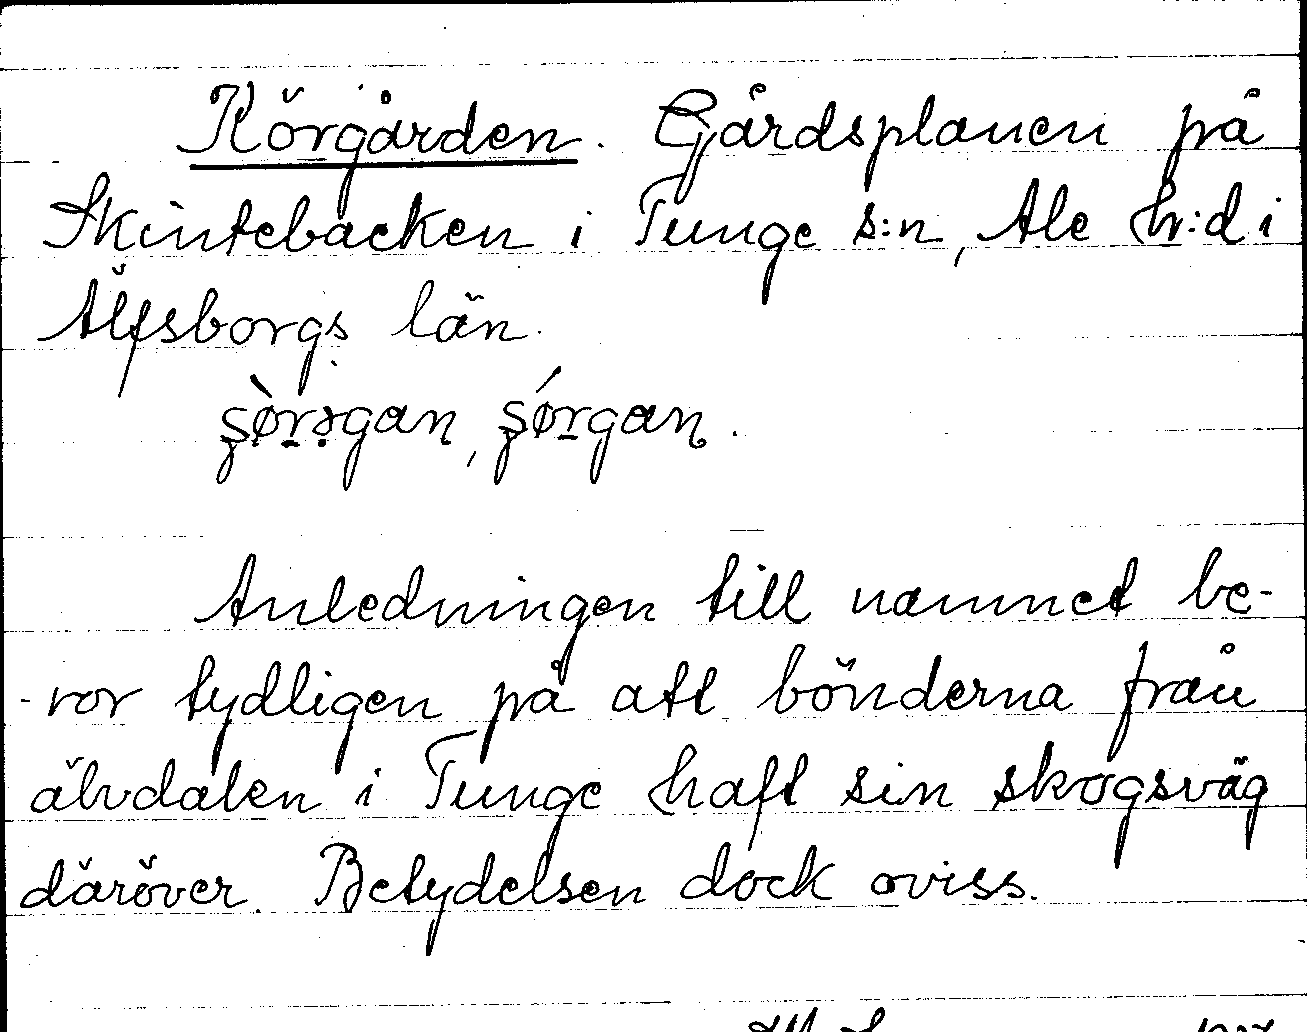 Körgården. Gårdsplanen på
Skintebacken i Tunge s:n, Ale h:d i
Älfsborgs län.
şòrəgan, şórgan.
Anledningen till namnet be-
-ror tydligen på att bönderna från
älvdalen i Tunge haft sin skogsväg
däröver. Betydelsen dock oviss.